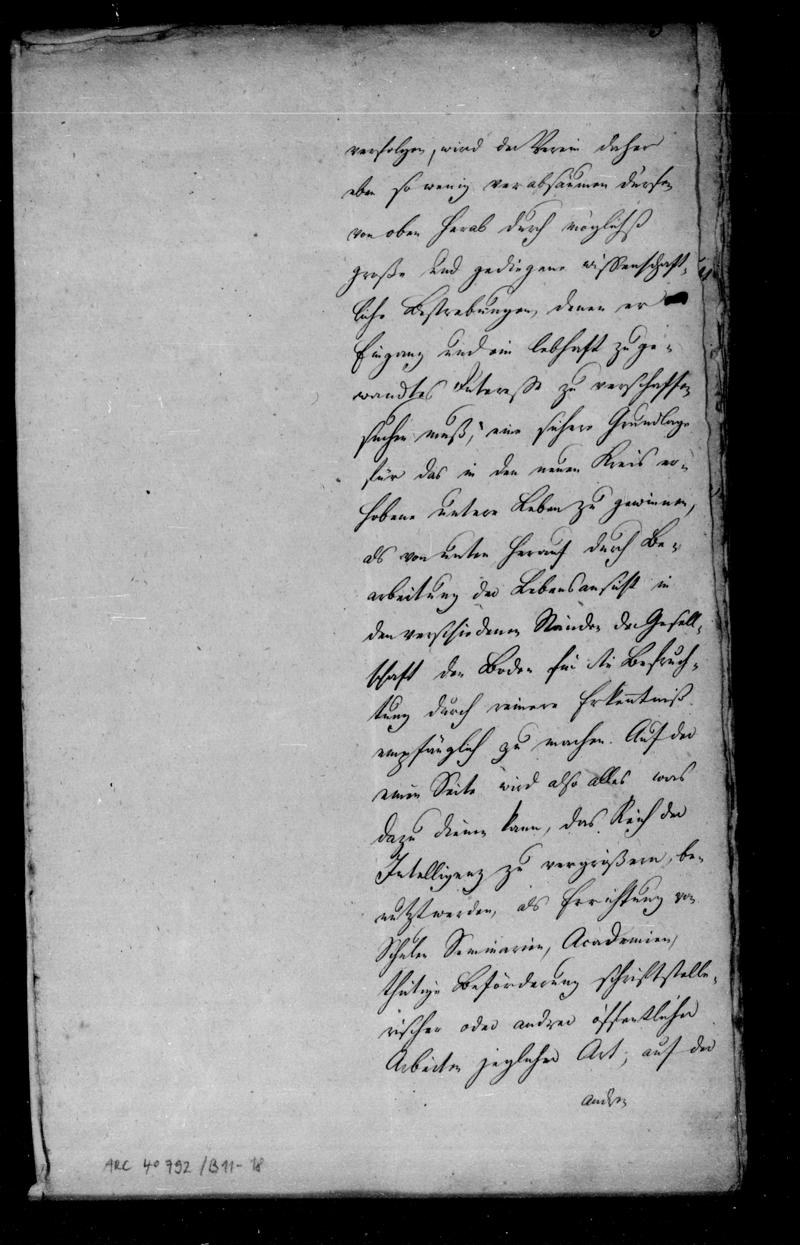 verfolgen, wird der Verein daher
eben so wenig verabsäumen dürfen
von oben herab durch möglichst
große und gediegene wissenschaft-
liche Bestrebungen, denen er
Eingang und ein lebhaft zuge-
wandtes Interesse zu verschaffen
suchen muß, eine sichere Grundlage
für das in den neuen Kreis er-
hobene untere Leben zu gewinnen,
als von unten herauf durch Be-
arbeitung der Lebensansicht in
den verschiedenen Ständen der Gesell-
schaft den Boden für die Befruch-
tung durch reinere Erkentniß
empfänglich zu machen. Auf der
einen Seite wird also alles was
dazu dienen kann, das Reich der
Intelligenz zu vergrößern, be-
nutzt werden, als Errichtung von
Schulen Seminarien, Academien,
thätige Beförderung schriftstelle-
rischer oder andrer öffentlicher
Arbeiten jeglicher Art; auf der
andren
ARC 4º 792 / B11 - 18